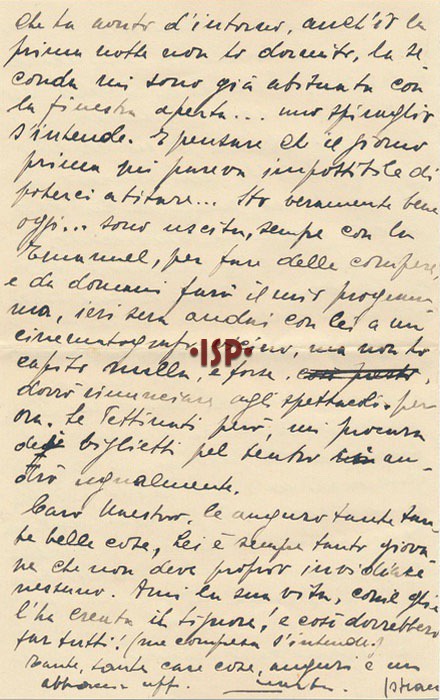 che ha nonto d'intorno, anch'io la
prima notte non ho dormito, la se
conda mi sono già abituata con
la finestra aperta... uno spiraglio
s'intende. E pensare che il giorno
prima mi pareva impossibile di
poterci abitare... Sto veramente bene
oggi... sono uscita, sempre con la
Emanuel, per fare delle compere
e da domani farò il mio program
ma, ieri sera andai con lei a un
cinematografo vicino, ma non ho
capito nulla, e forse
dovrò rinunciare agli spettacoli per
ora. Se però, mi procura
dei biglietti pel teatro an-
drò ugualmente.
Caro Maestro, le auguro tante tan
te belle cose, Lei è sempre tanto giova
ne che non deve proprio invidiare
nessuno. Ami la sua vita, come gliel'
l'ha creata il Signore, e così dovrebbero
far tutti! (me compresa s'intende)
Tante, tante care cose, auguri e un
abbraccio aff.
•ISP•